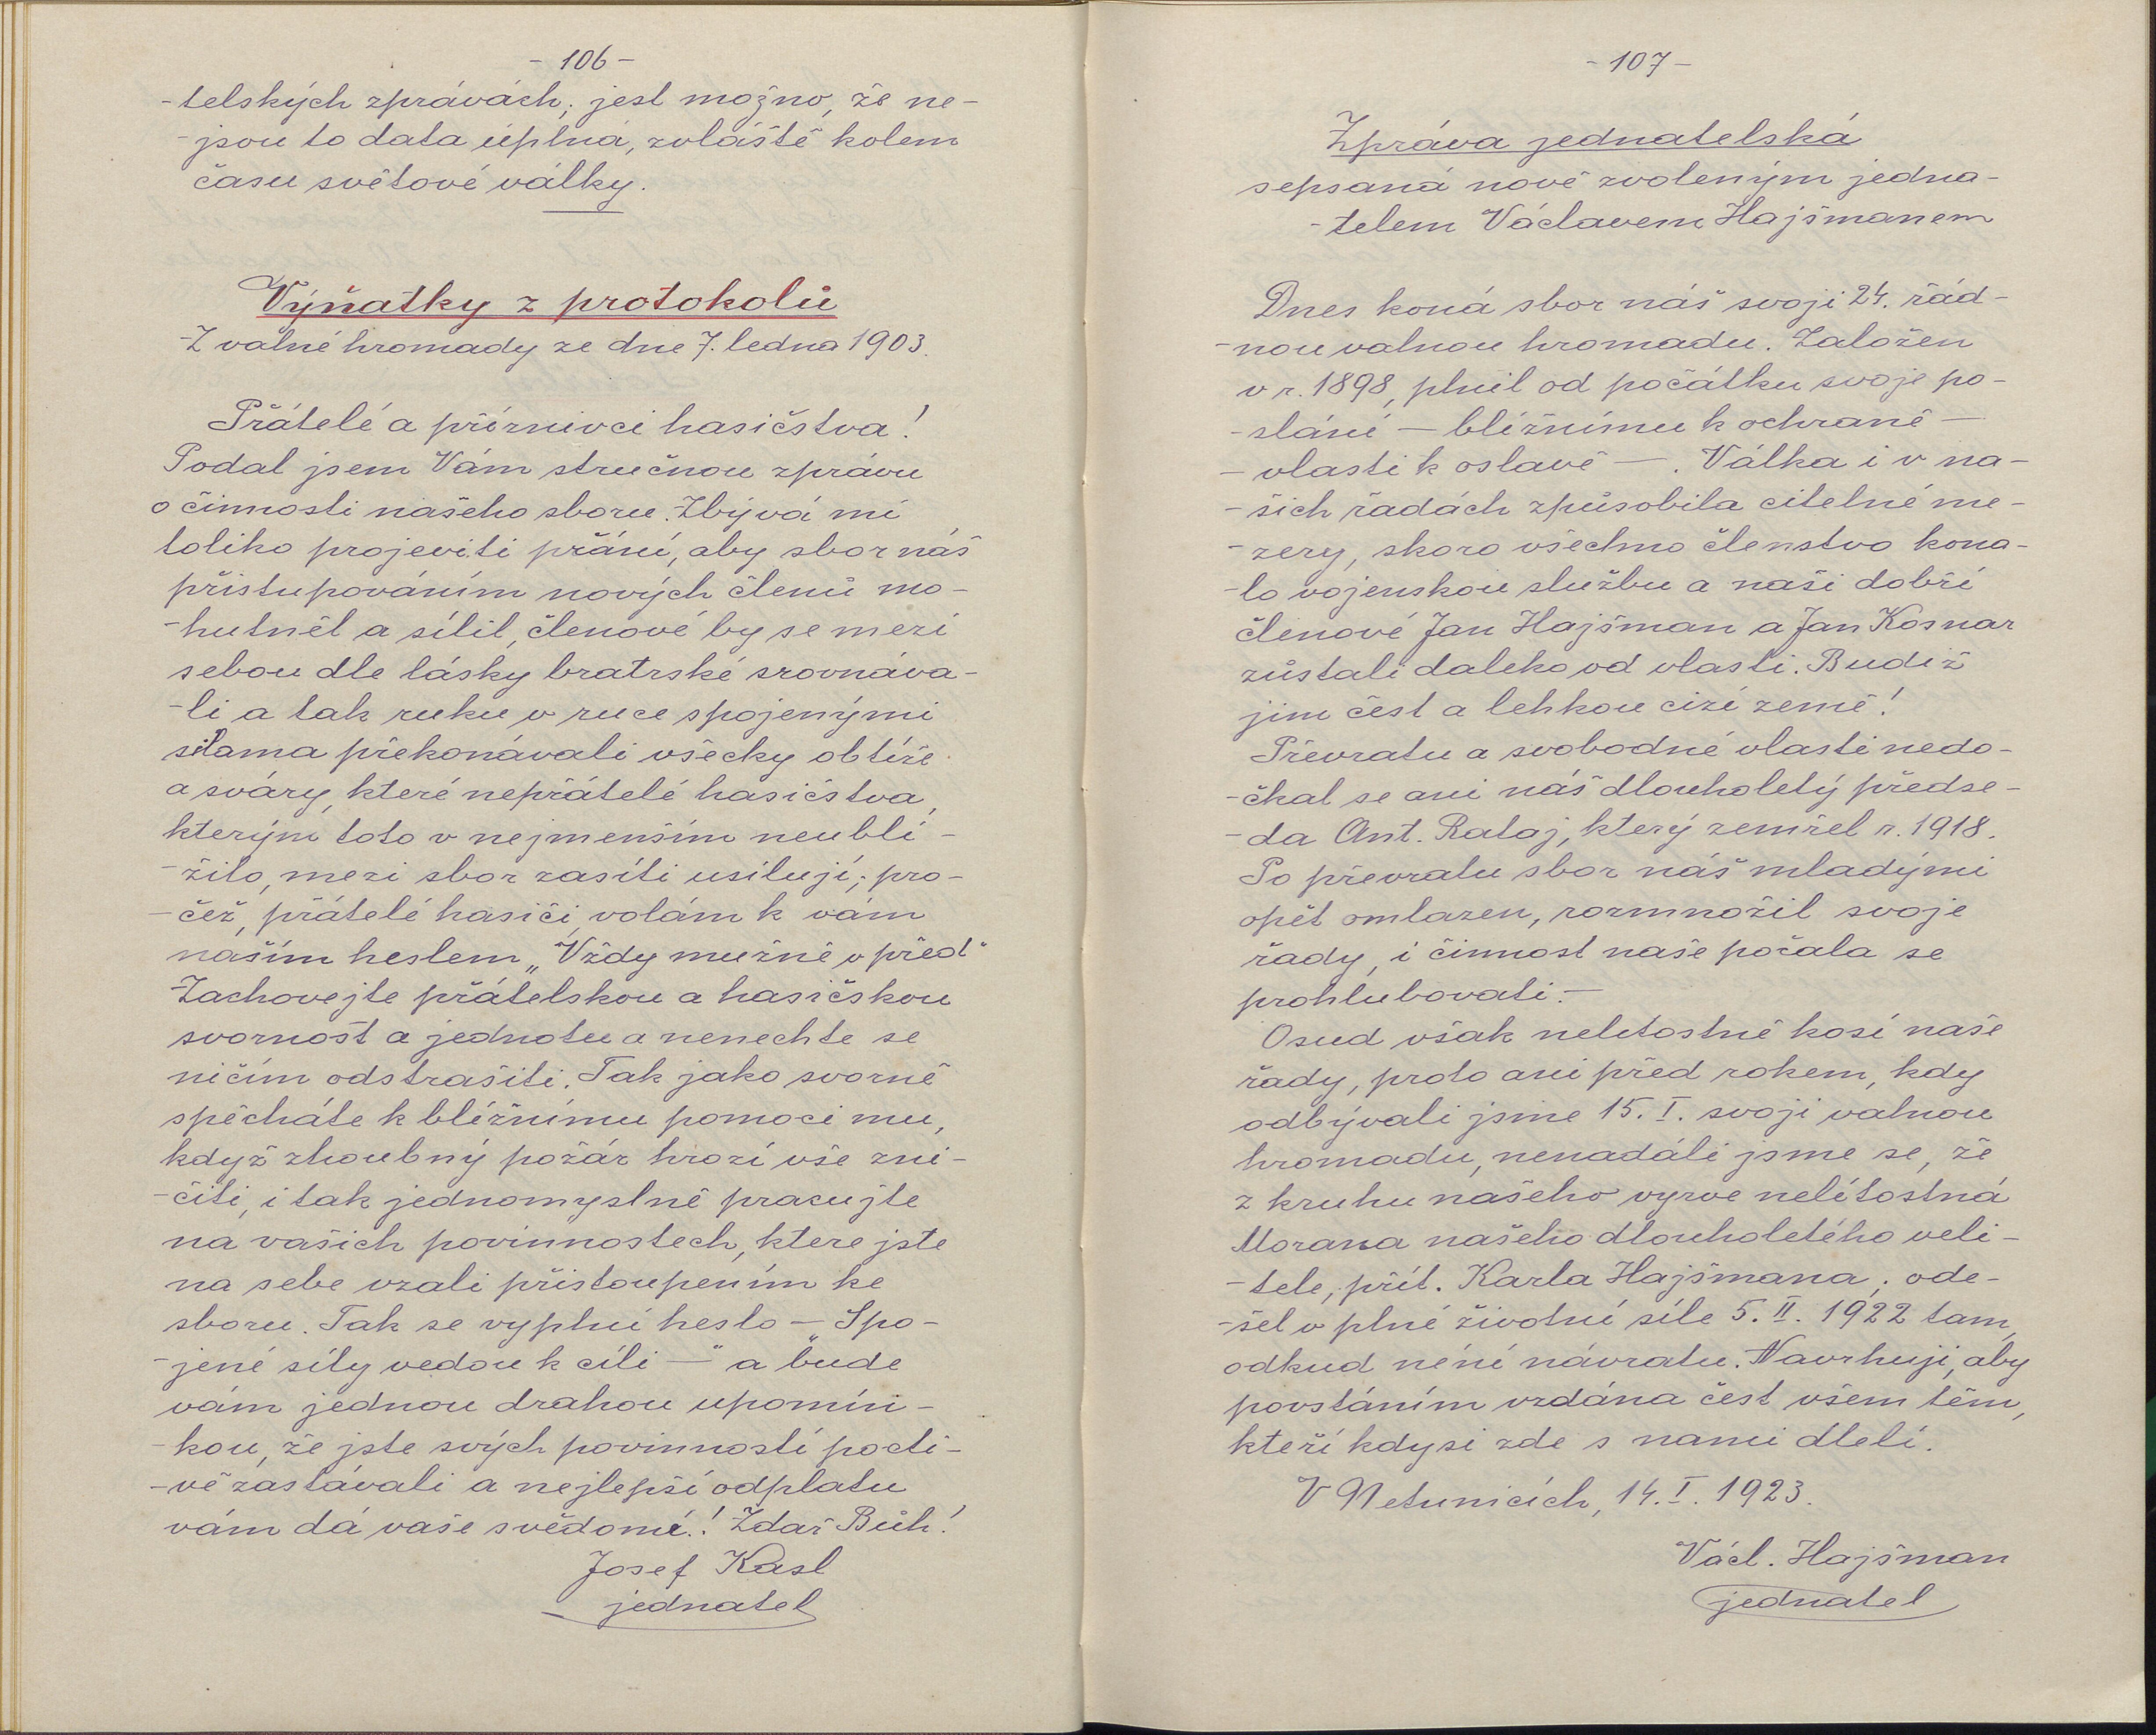 - 106 -
-telských zprávách; jest možno, že ne-
-jsou to data úplná, zvláště kolem
času světové války.
Výňatky z protokolů
Z valné hromady ze dne 7. ledna 1903.
Přátelé a příznivci hasičstva!
Podal jsem Vám stručnou zprávu
o činnosti našeho sboru. Zbývá mi
toliko projeviti přání, aby sbor náš
přistupováním nových členů mo-
-hutněl a sílil, členové by se mezi
sebou dle lásky bratrské srovnáva-
-li a tak ruku v ruce spojenými
silama překonávali všecky obtíže
a sváry, které nepřátelé hasičstva,
kterým toto v nejmenším neublí-
-žilo, mezi sbor zasíti usilují; pro-
-čež, přátelé hasiči, volám k vám
naším heslem „Vždy mužně v před"
Zachovejte přátelskou a hasičskou
svornost a jednotu a nenechte se
ničím odstrašiti. Tak jako svorně
spěcháte k bližnímu pomoci mu,
když zhoubný požár hrozí vše zni-
-čiti, i tak jednomyslně pracujte
na vašich povinnostech, ktere jste
na sebe vzali přistoupením ke
sboru. Tak se vyplní heslo – „Spo-
-jené síly vedou k cíli –" a bude
vám jednou drahou upomín-
-kou, že jste svých povinností pocti-
-vě zastávali a nejlepší odplatu
vám dá vaše svědomí.! Zdař Bůh!
Josef Kasl
jednatel
- 107 -
Zpráva jednatelská
sepsaná nově zvoleným jedna-
-telem Václavem Hajšmanem
Dnes koná sbor náš svoji 24. řád-
-nou valnou hromadu. Založen
v r. 1898, plnil od počátku svoje po-
-slání – bližnímu k ochraně –
- vlasti k oslavě –. Válka i v na-
-šich řadách způsobila citelné me-
-zery, skoro všechno členstvo kona-
-lo vojenskou službu a naši dobří
členové Jan Hajšman a Jan Kosnar
zůstali daleko od vlasti. Budiž
jim čest a lehkou cizí země!
Převratu a svobodné vlasti nedo-
-čkal se ani náš dlouholetý předse-
-da Ant. Rataj, který zemřel r. 1918.
Po převratu sbor náš mladými
opět omlazen, rozmnožil svoje
řady, i činnost naše počala se
prohlubovati.-
Osud však nelítostně kosí naše
řady, proto ani před rokem, kdy
odbývali jsme 15. I. svoji valnou
hromadu, nenadáli jsme se, že
z kruhu našeho vyrve nelítostná
Morana našeho dlouholetého veli-
-tele, přít. Karla Hajšmana; ode-
-šel v plné životní síle 5. II. 1922 tam,
odkud není návratu. Navrhuji, aby
povstáním vzdána čest všem těm,
kteří kdysi zde s nami dleli.
V Netunicích, 14. I. 1923.
Václ. Hajšman
jednatel